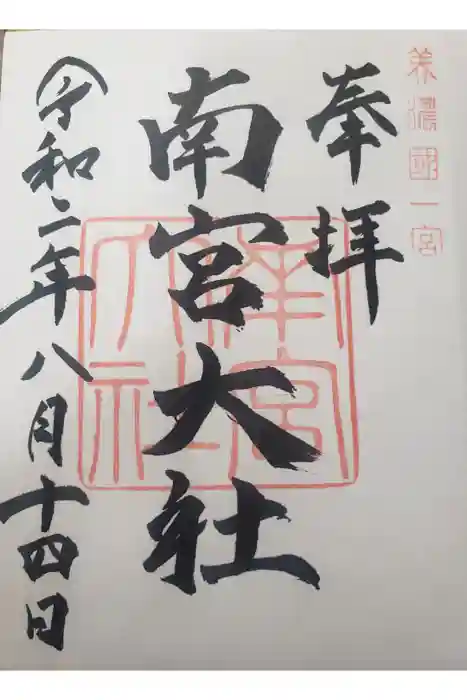 美濃國一宮
奉拝
南宮大社
南宮大社
令和二年八月十四日